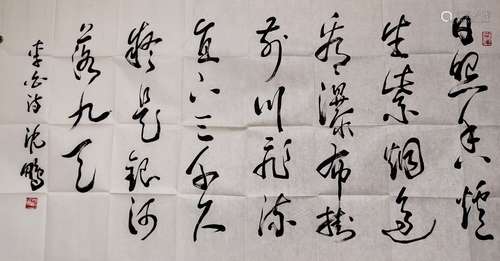 日照香爐
生紫烟遥
看瀑布掛
前川飛流
直下三千尺
疑是銀河
落九天
李白詩 沈鵬